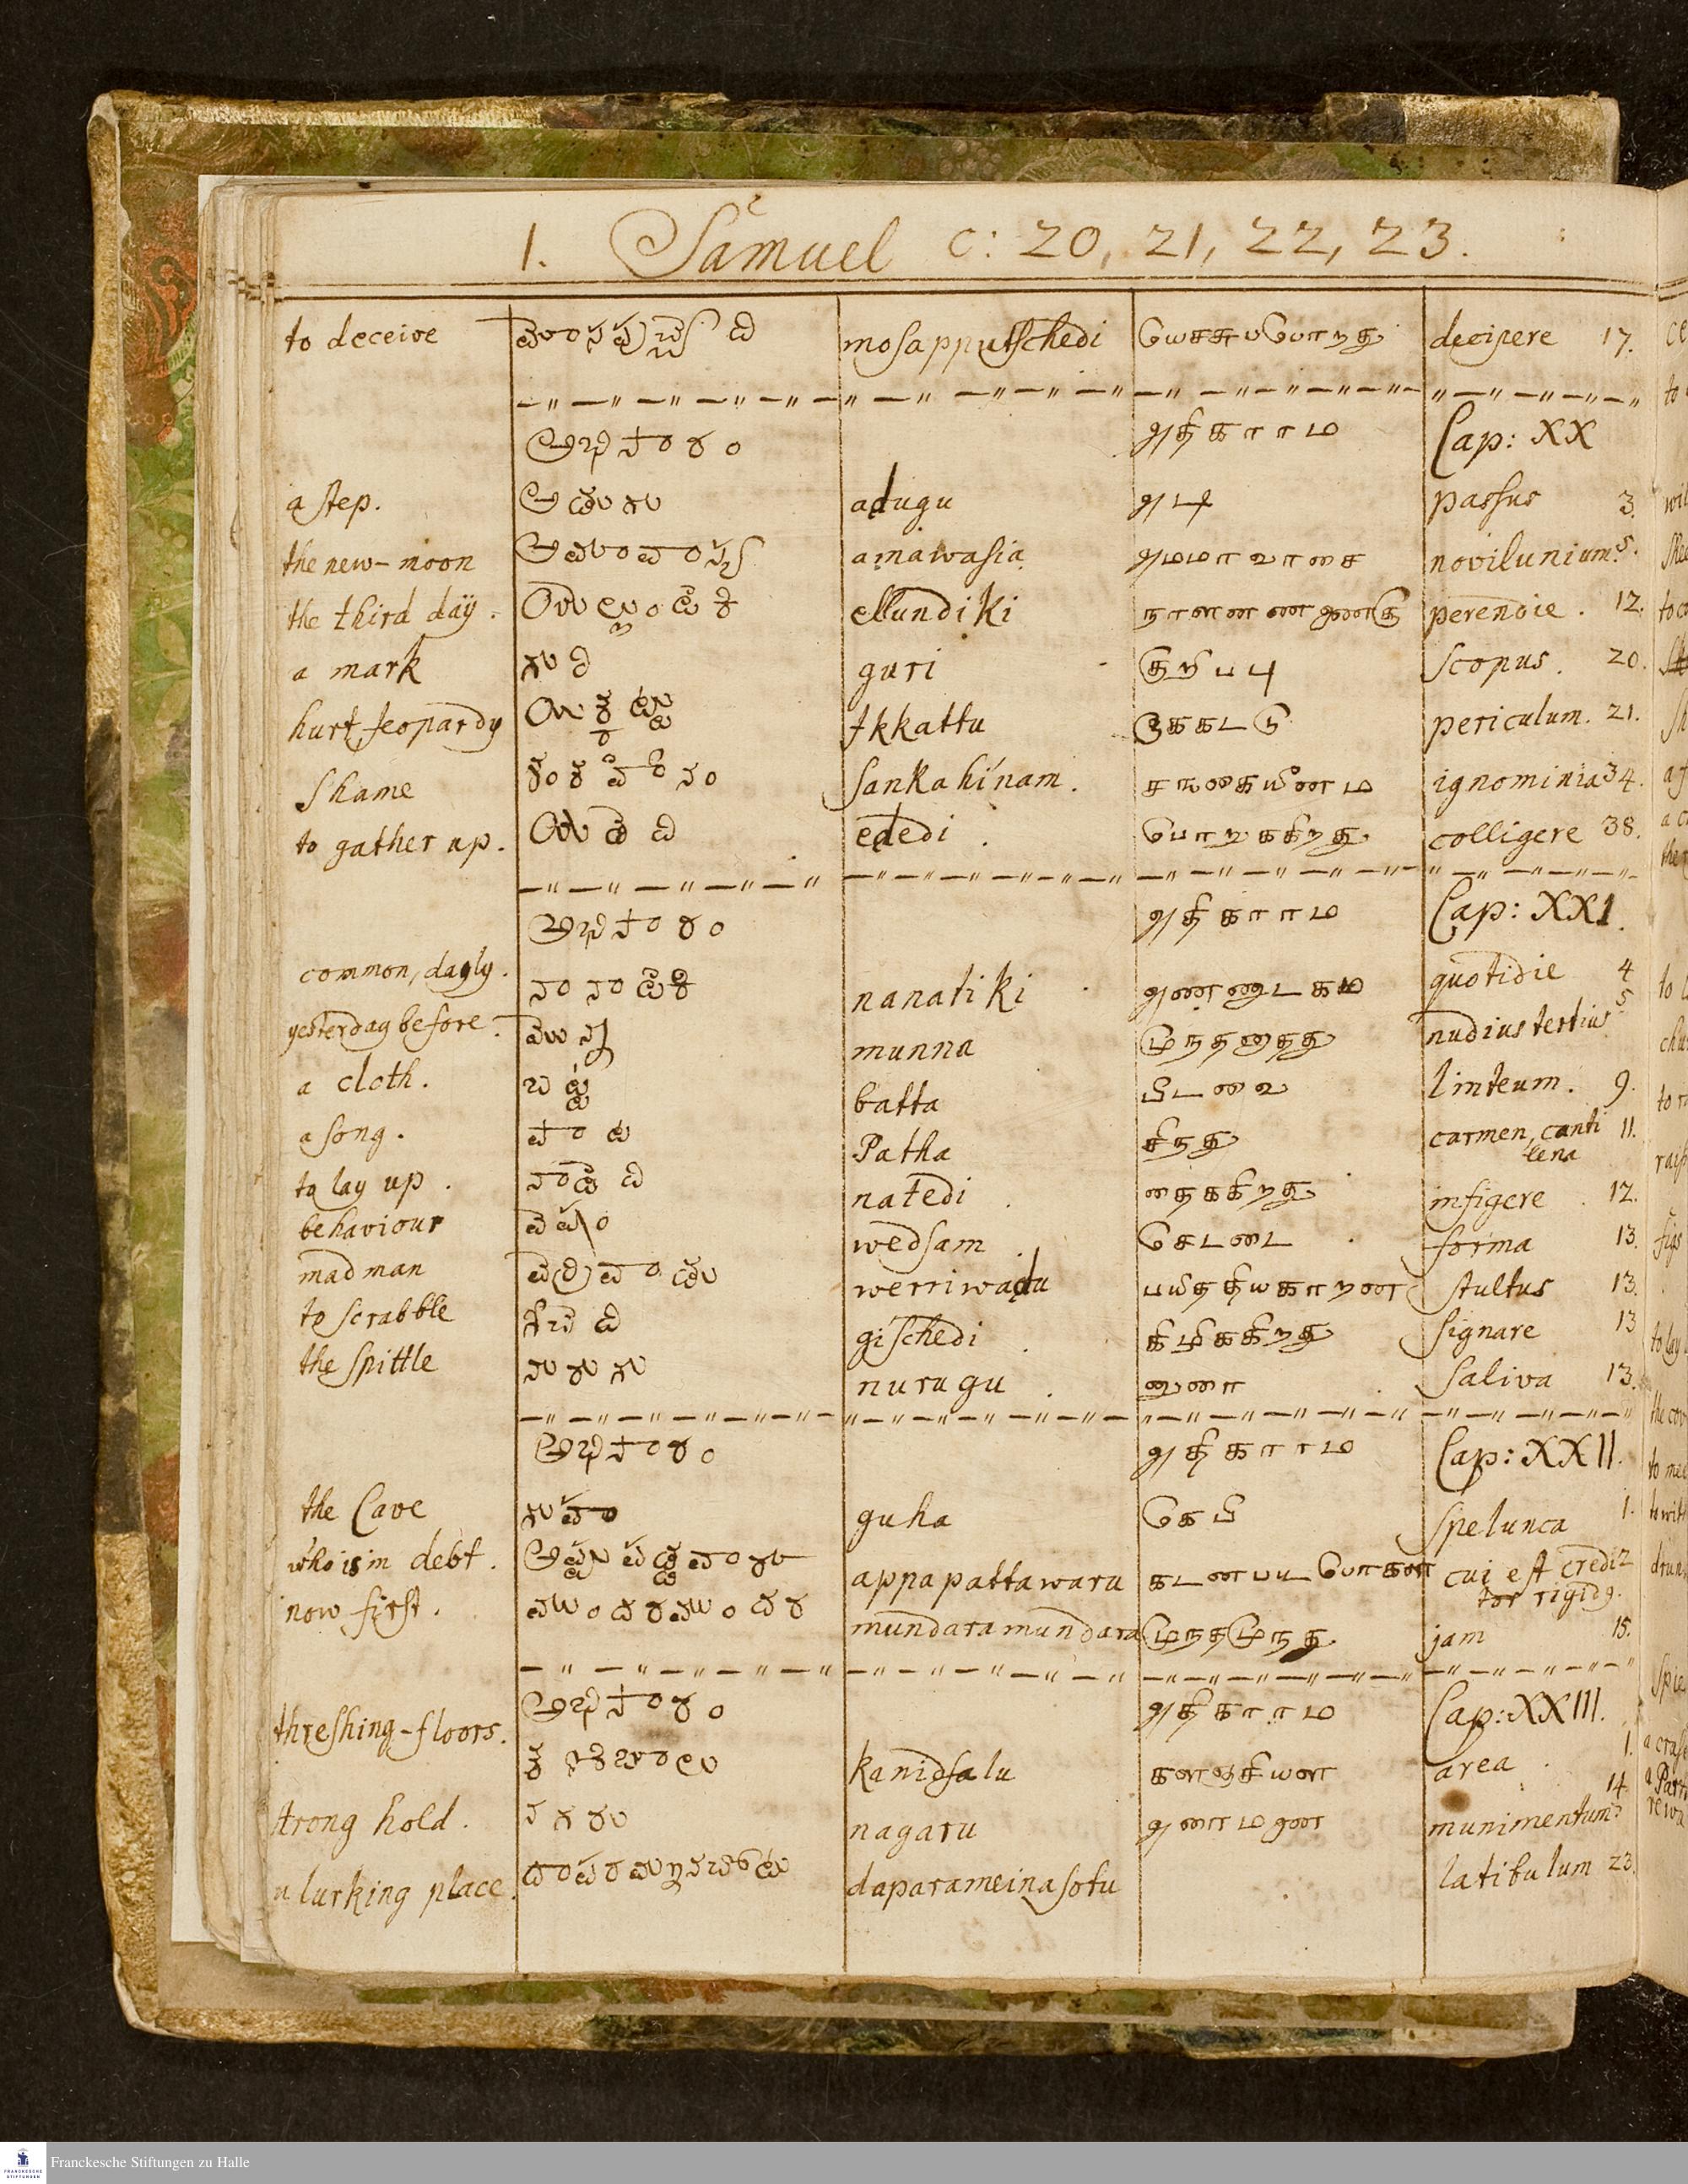 1. Samuel c: 20, 21, 22, 23.
to deceive mosapputschedi decipere 17.
అధికారం அதிகாரம Cap: XX
a step. అడుగు adugu அடி passus 3.
the new-moon అమావాస్య amawasia அமமாவாசை novilunium. 5.
the third daÿ. ఎల్లుండికి ellundiki perendie. 12.
a mark గురి guri குறிபபு scopus. 20.
hurt jeopardy ఇక్కట్టు Ikkattu இககடடு periculum. 21.
Shame sankahinam. ignominia 34.
to gather up. ఎత్తేది ededi. பொறுககிறது colligere 38.
అధికారం அதிகாரம Cap: XXI.
common, dayly. నానాటికి nanatiki quotidie 4
yesterday before. మున్న munna முநதனதது nudius tertius 5
a cloth. బట్ట batta பிடவை linteum. 9.
a song. పాట Patha சிநது carmen, canti lena 11.
to lay up. నాటేది natedi. தைககிறது infigere. 12.
behaviour వేషం wedsam. சேடடை. forma 13.
mad man వెర్రివాడు werriwadu பயிததியகாறன stultus 13.
to scrabble గీచేది gischedi. கிழிககிறது signare 13
the Spittle నురుగు nurugu. நுரை Saliva 13.
అధికారం அதிகாரம Cap: XXII.
the Cave గుహా guha கெபி spelunca 1.
who is in debt. అప్పపట్టవారు appapattawaru cui est credi tor rigidg. 2
now first. ముందరముందర mundaramundara முநதமுநத jam 15.
అధికారం அதிகாரம Cap: XXIII.
threshing-floors. kanidsalu area. 1.
strong hold. నగరు nagaru அரமண munimentum. 14
a lurking place. daparameinasotu latibulum 23.
Franckesche Stiftungen zu Halle